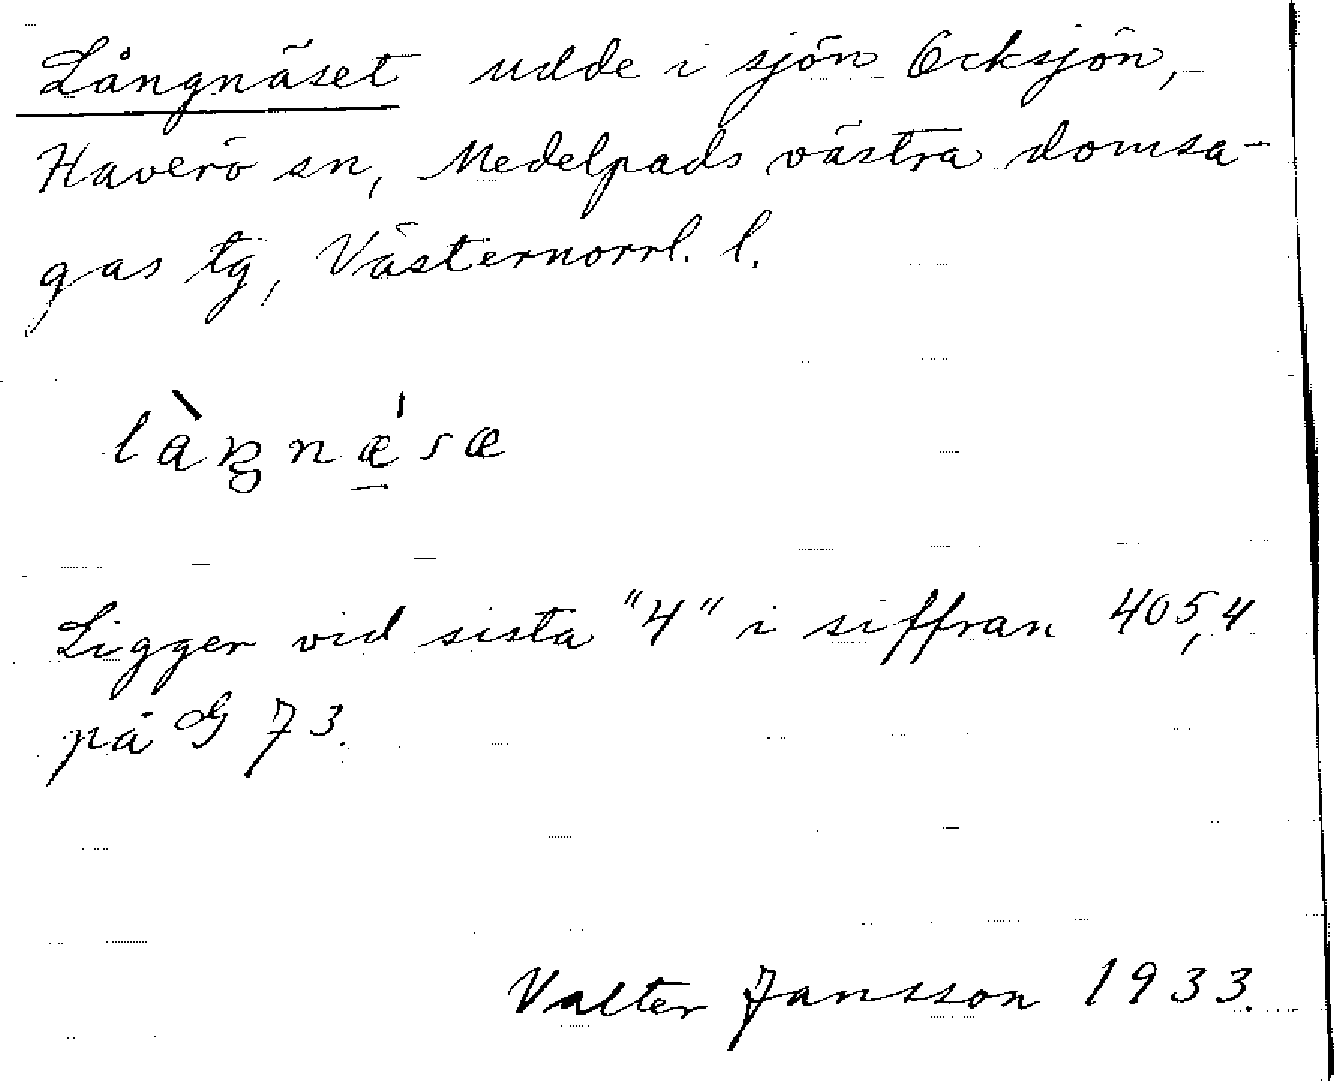 Långnäset udde i sjön Ocksjön,
Haverö sn, Medelpads västra domsa-
gas tg, Västernorrl. l.
làŋnǽ̱sæ
Ligger vid sista "4" i siffran 405,4
på G 73.
Valter Jansson 1933.